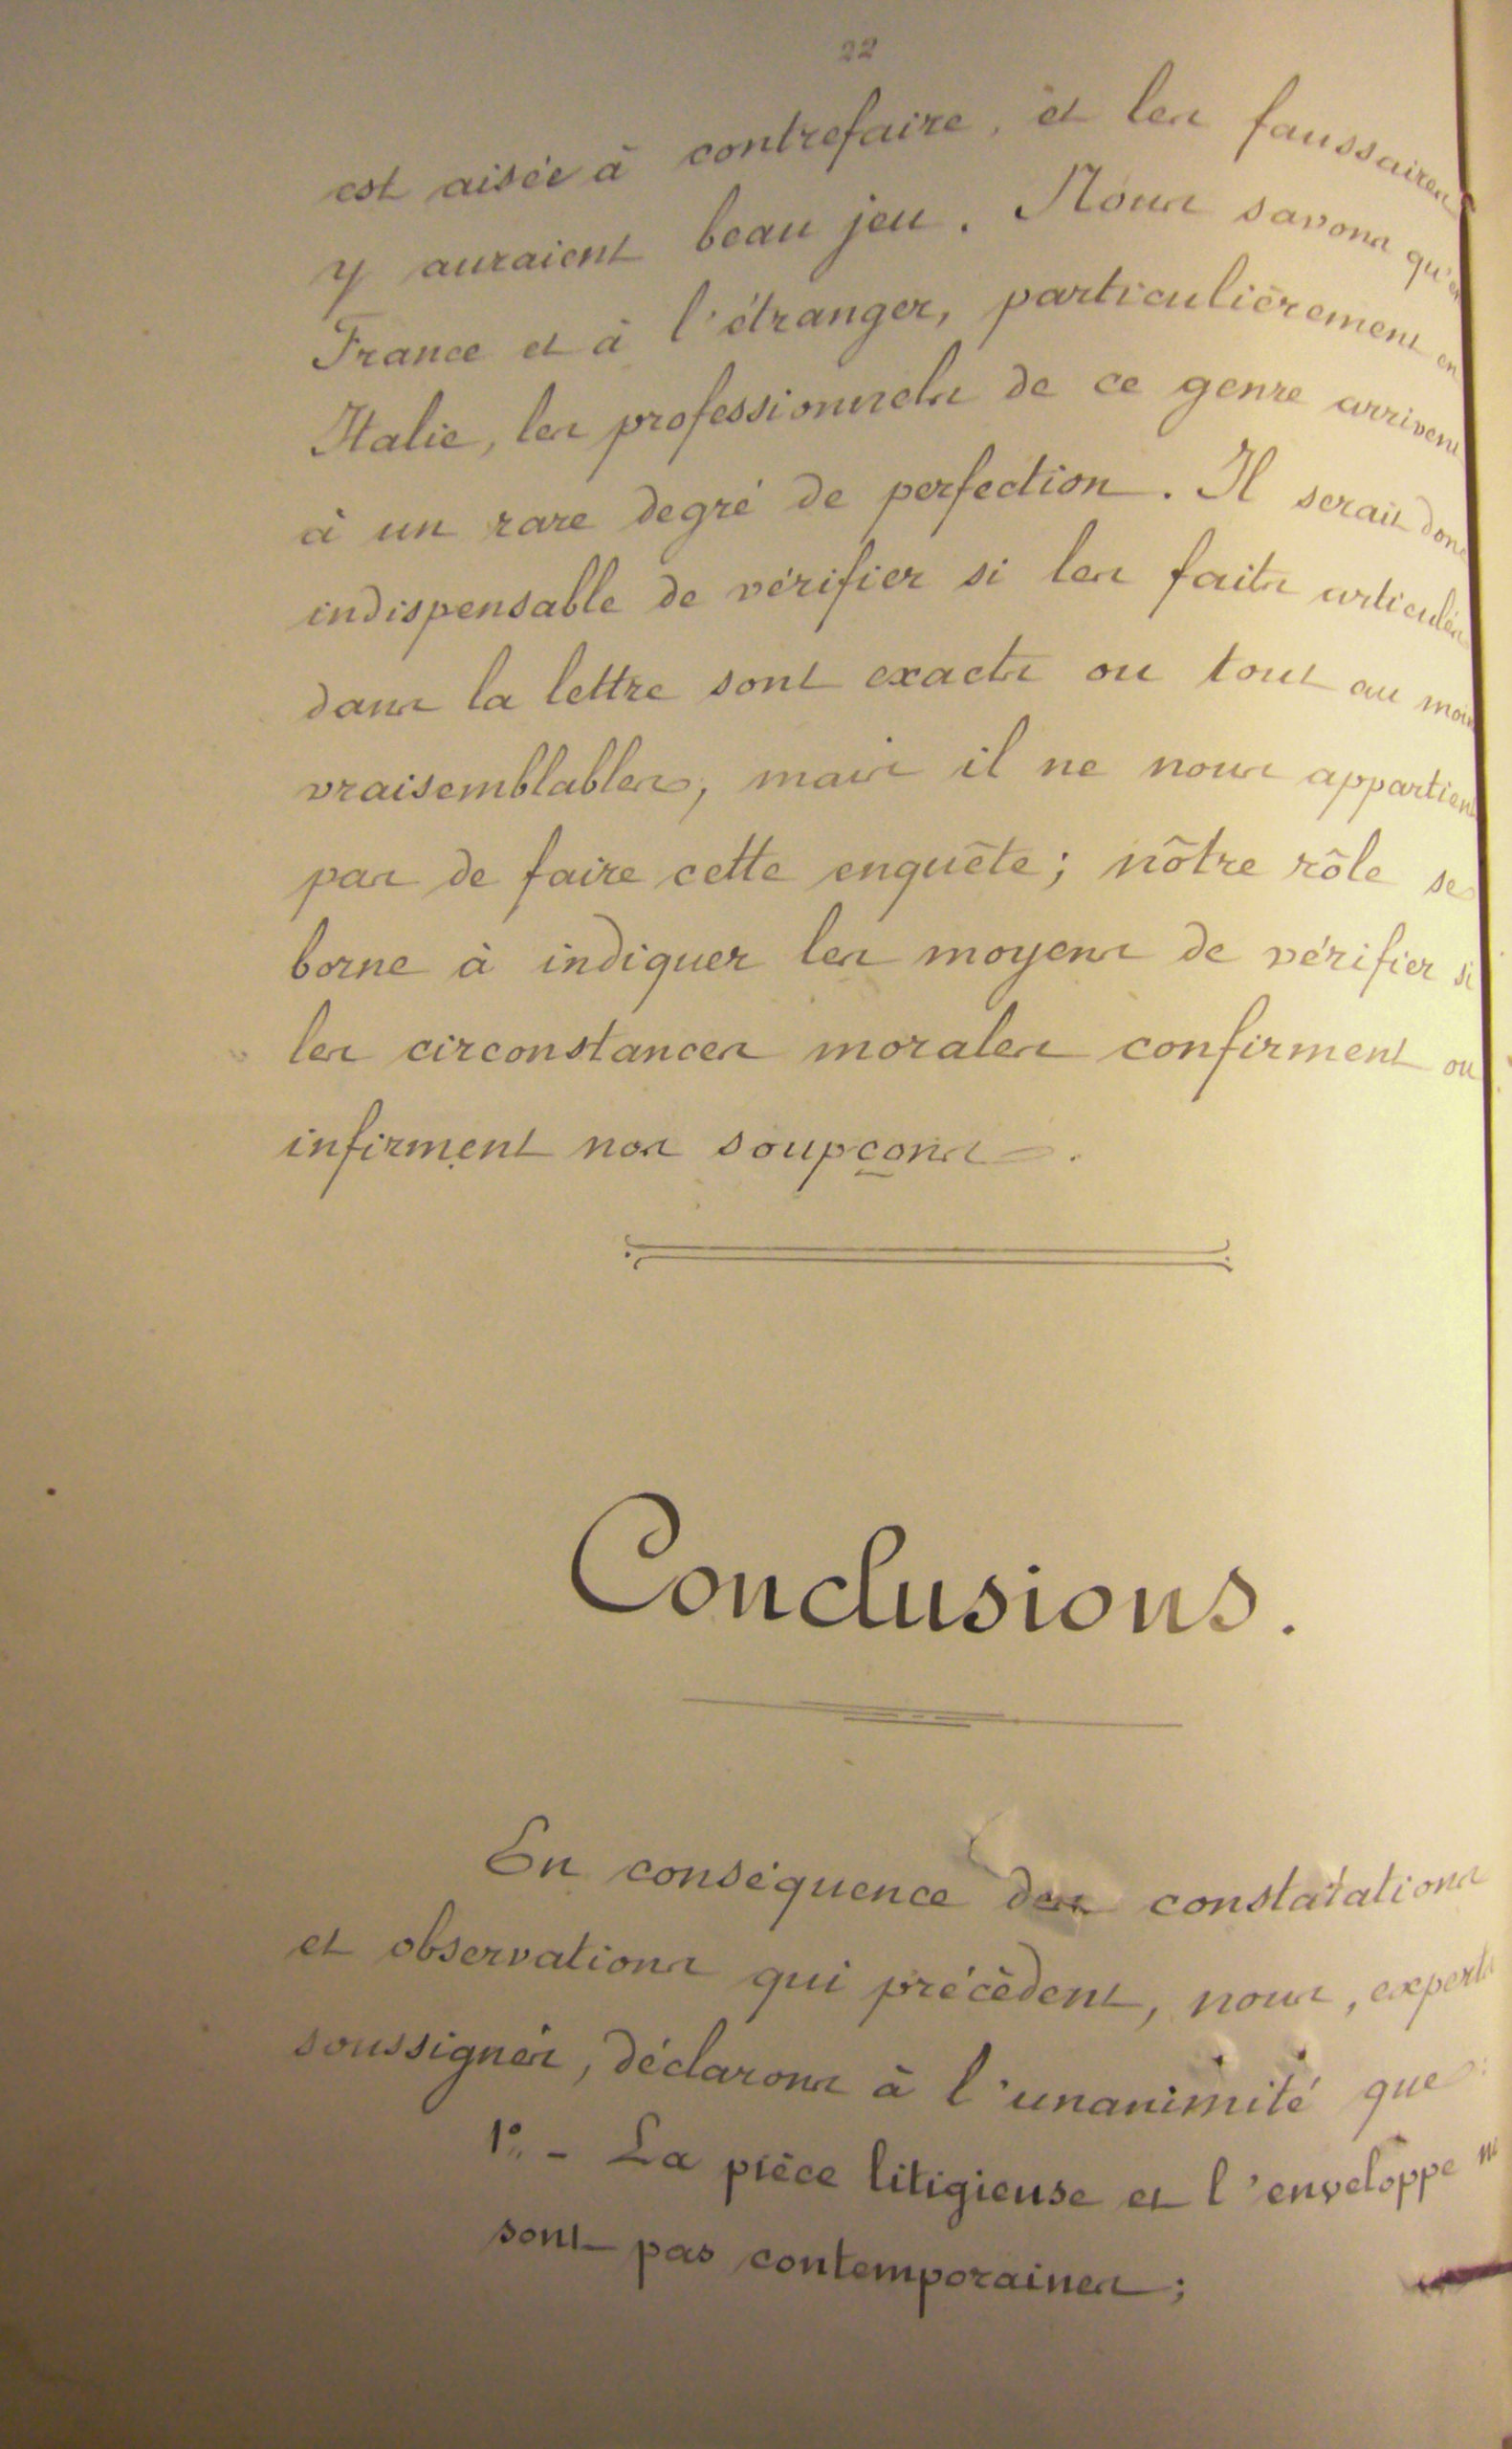 22
est aisée à contrefaire, et les faussaires
y auraient beau jeu. Nous savons qu'en
France et à l'étranger, particulièrement en
Italie, les professionnels de ce genre arrivent
à un rare degré de perfection. Il serait donc
indispensable de vérifier si les faits articulés
dans la lettre sont exacts ou tout au moins
vraisemblables, mais il ne nous appartient
pas de faire cette enquête; nôtre rôle se
borne à indiquer les moyens de vérifier si
les circonstances morales confirment ou
infirment nos soupçons.
Conclusions.
En conséquence des constatations
et observations qui précèdent, nous, experts
soussignés, déclarons à l'unanimité que:
1°. - La pièce litigieuse et l'enveloppe ne
sont pas contemporaines;